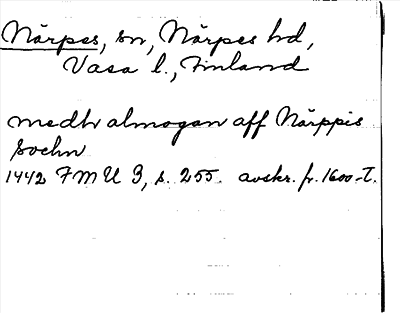 Närpes, sn, Närpes hd,
Vasa l., Finland
medh almogan aff Närppis
sochn
1442 FMU 3, s. 255. avskr. fr. 1600-t.